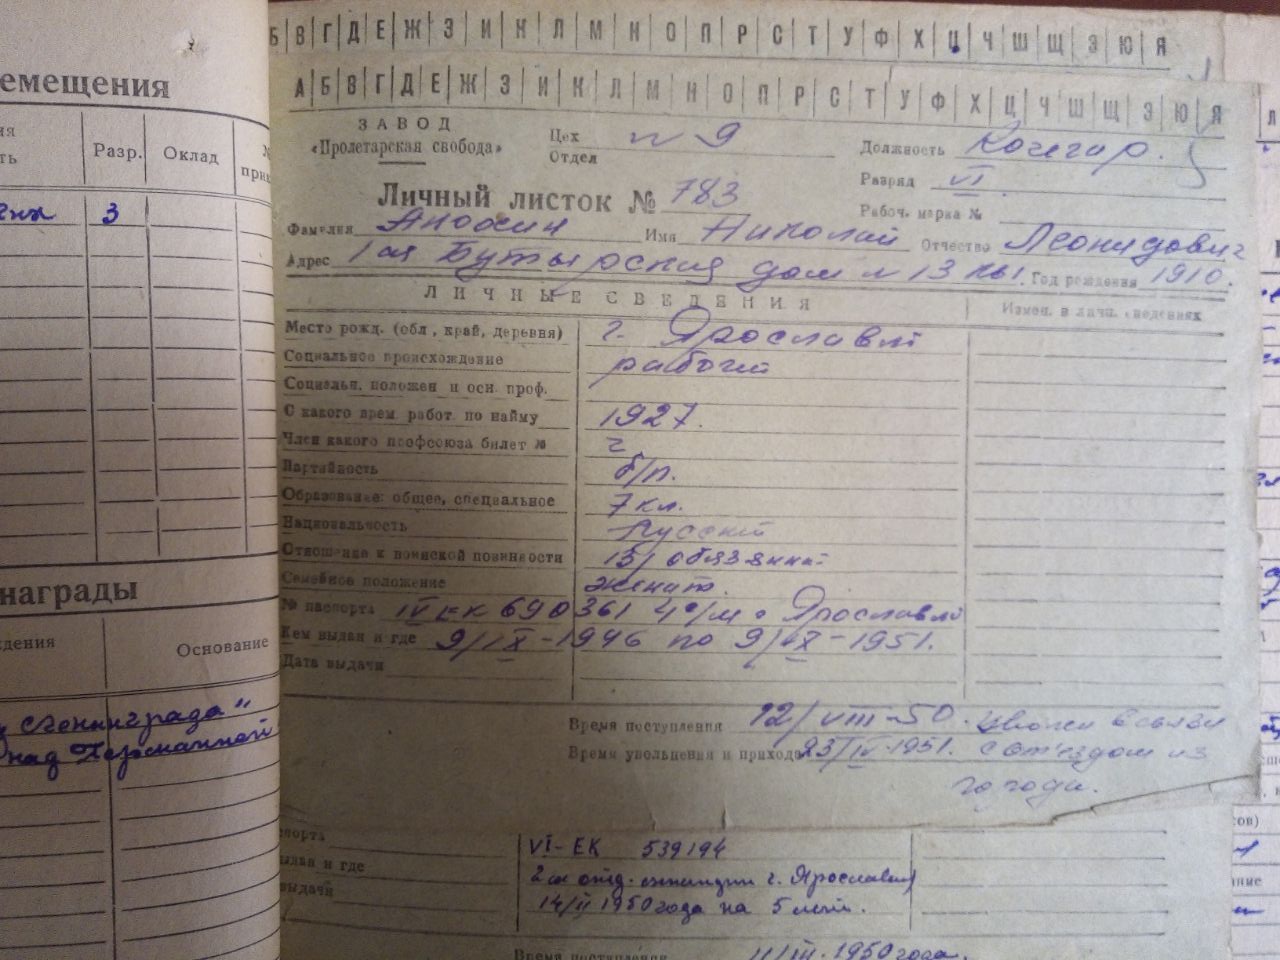 емещения
Разр. Оклад
3
награды
Основание
Б В Г Д Е Ж З И К Л М Н О П Р С Т У Ф Х Ц Ч Ш Щ Э Ю Я
А Б В Г Д Е Ж З И К Л М Н О П Р С Т У Ф Х Ц Ч Ш Щ Э Ю Я
ЗАВОД
«Пролетарская свобода»
Цех № 9
Отдел
Должность Кочегар.
Разряд VI
Рабоч. марка №
Личный листок № 783
Фамилия Анохин Имя Николай Отчество Леонидович
Адрес 1 ая Бутырская дом № 13 кв 1. Год рождения 1910.
ЛИЧНЫЕ СВЕДЕНИЯ Измен. в личн. сведениях
Место рожд. (обл., край, деревня) г. Ярославль
Социальное происхождение рабочий
Социальн. положен и осн. проф.
С какого врем работ. по найму 1927.
Член какого профсоюза билет №
Партийность б/п.
Образование: общее, специальное 7 кл.
Национальность Русский
Отношение к воинской повинности в/обязанный
Семейное положение женат.
№ паспорта IV ЕК 690361 4 о/м г. Ярославль
Кем выдан и где 9/IX-1946 по 9/IX-1951.
Дата выдачи
Время поступления 12/VIII-50. уволен в связи
Время увольнения и прихода 23/IV-1951. с отъездом из
города.
Ленинграда"
над Германией
VI-ЕК 539194
и где 2 ое отд. милиции г. Ярославля
выдачи 14/II 1950 года на 5 лет.
Время поступления 11/III-1950 года.